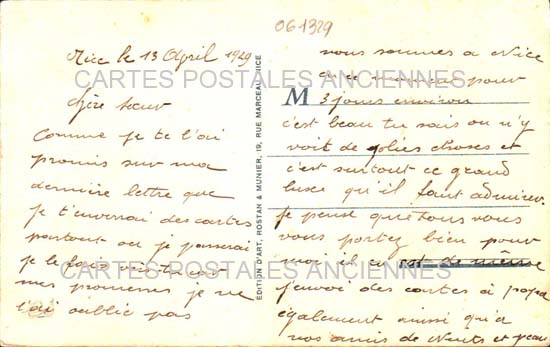 061329
Nice le 13 April 1929
Chère Sœur
Comme je te l'ai
promis sur ma
dernière lettre que
je t'enverrai des cartes
partout où je passerai
je le fais voit tu car
mes promesses je ne
l'ai oublié pas
EDITION D'ART, ROSTAN & MUNIER, 19, RUE MARCEAU, NICE
nous sommes a Nice
en ce moment pour
M 3 jours environ
c'est beau tu sais on n'y
voit de jolies choses et
c'est surtout ce grand
luxe qu'il faut admirer.
je pense que tous vous
vous portez bien pour
moi il en est de même
j'envoi des cartes à papa
également aussi qu'a
nos amis de Nuits et
CARTES POSTALES ANCIENNES
CARTES POSTALES ANCIENNES